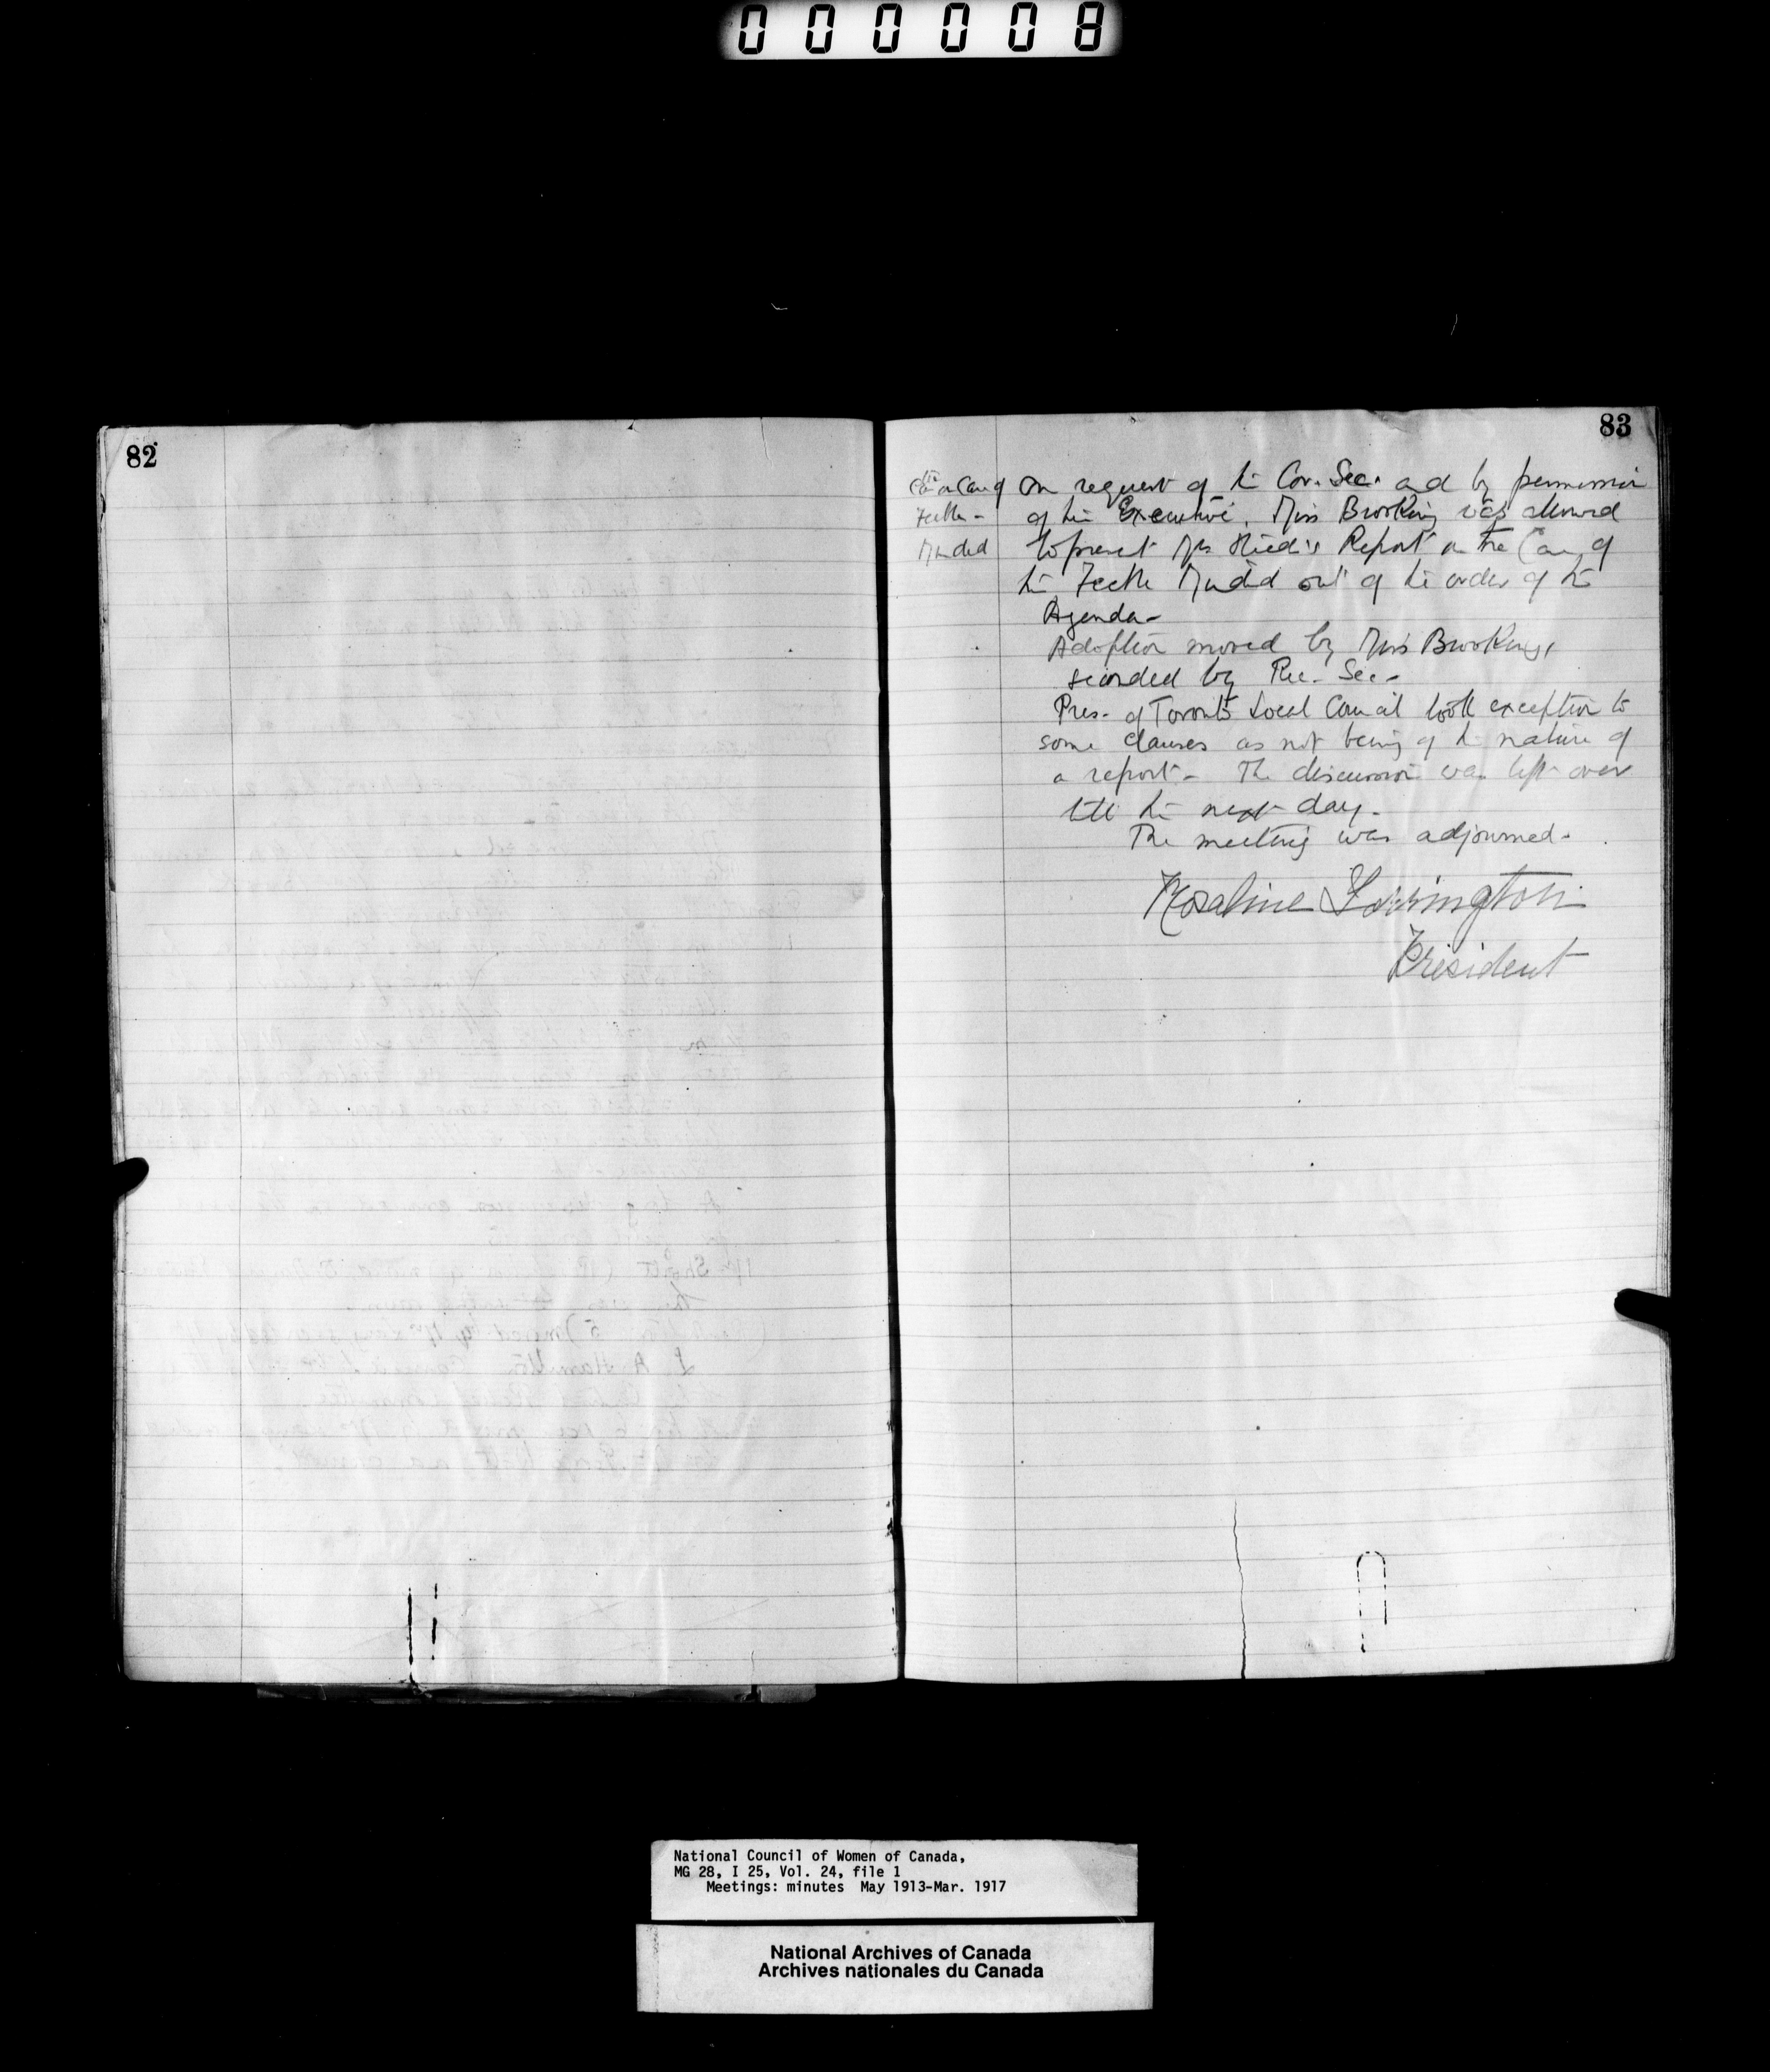 000008
82
83
Com on Care of
Feeble-
Minded
On request of the Cor. Sec. and by permission
of the Executive, Miss Brooking was allowed
to present Mrs Report on the Care of
the Feeble Minded out of the order of the
Agenda-
Adoption moved by Miss Brooking,
seconded by Rec. Sec-
Pres- of Toronto Local Council took exception to
some clauses as not being of the nature of
a report- The discussion was left over
till the next day-
The meeting was adjourned-
Rosaline Torrington
President
National Council of Women of Canada,
MG 28, I 25, Vol. 24, file 1
Meetings: minutes May 1913-Mar. 1917
National Archives of Canada
Archives nationales du Canada